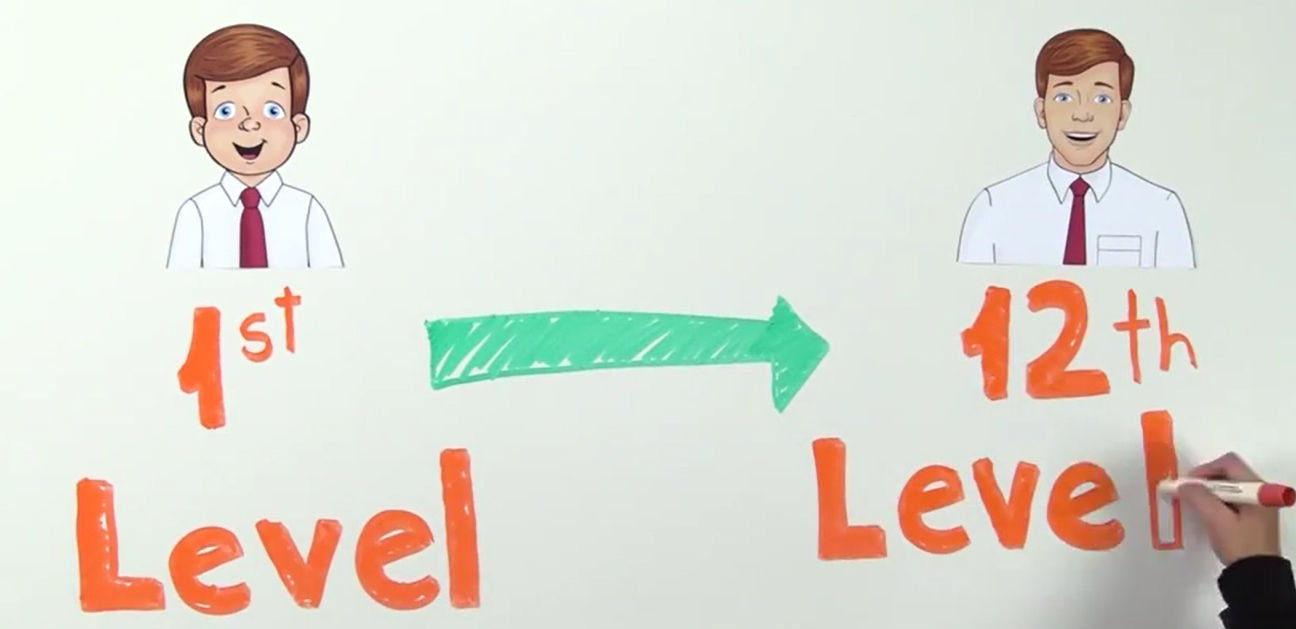 1st
Level
12th
Level